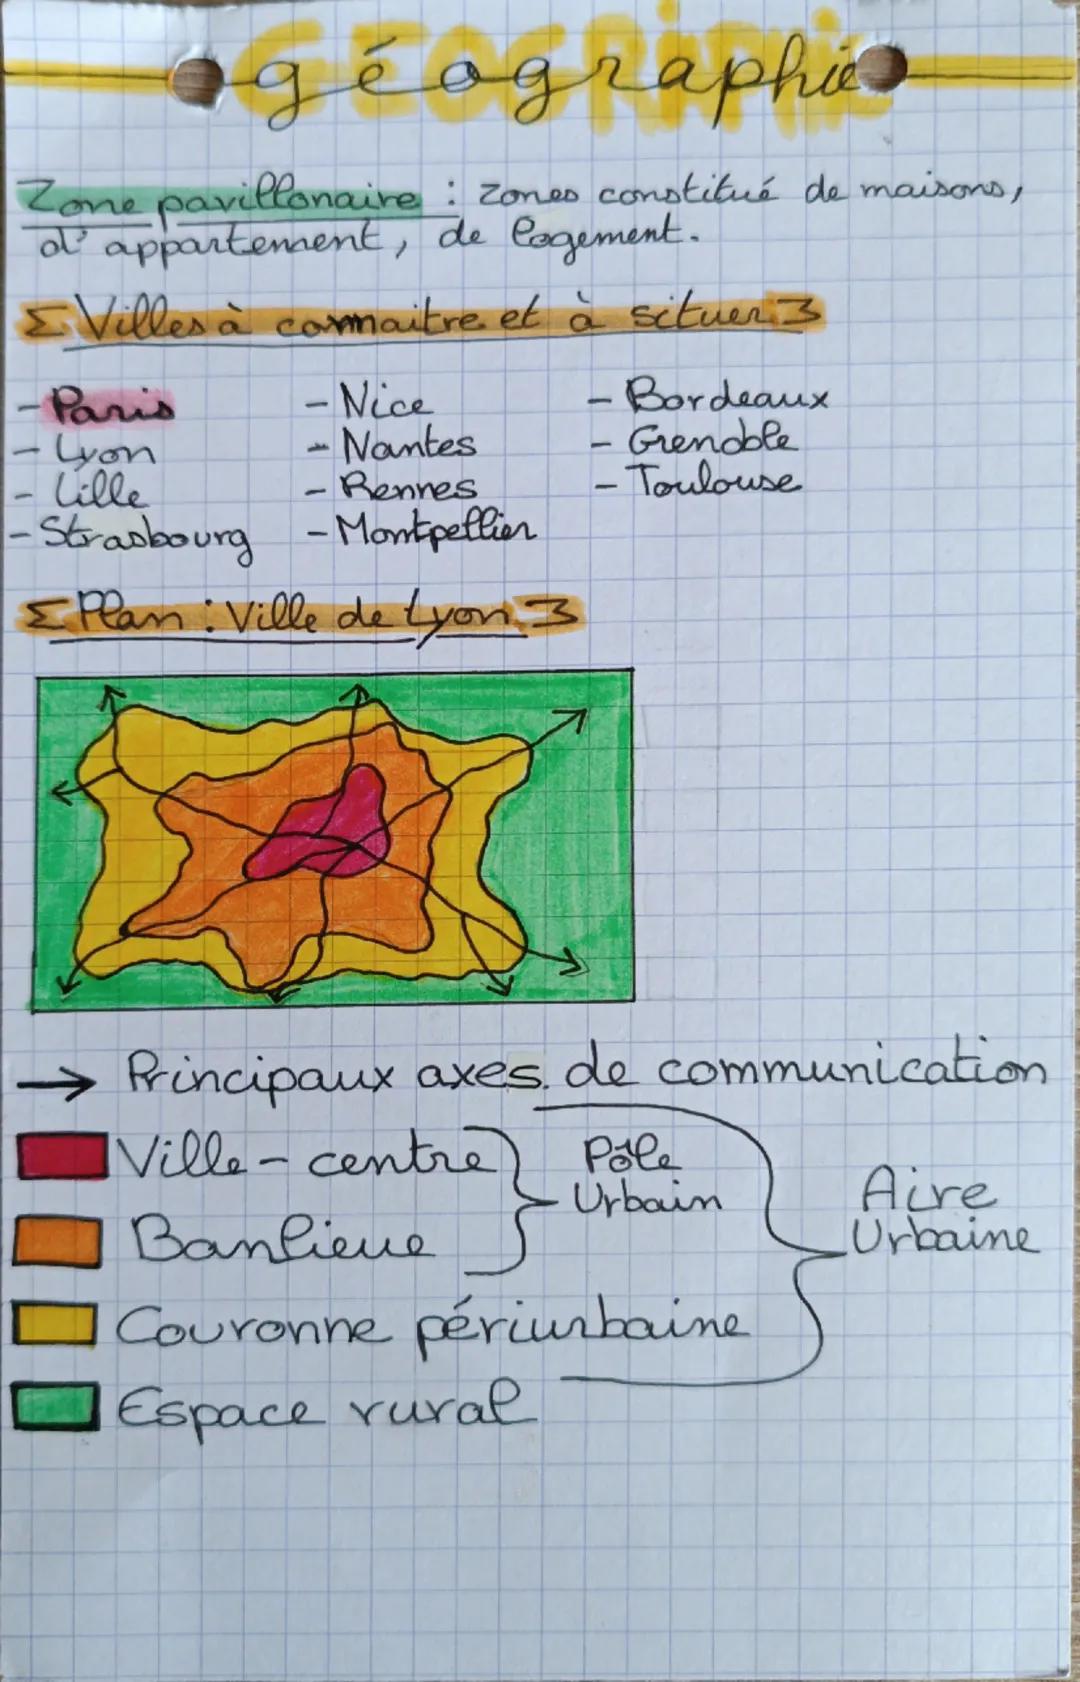 GEOGRAPHIE
géographie
Zone pavillonaire : zones constitué de maisons,
d'appartement, de logement.
Villes à connaitre et à situer
- Paris
- Lyon
- Lille
- Strasbourg
- Nice
- Nantes
- Rennes
- Montpellier
- Bordeaux
- Grenoble
- Toulouse
Plan : Ville de Lyon
→ Principaux axes de communication
Ville-centre
Banlieue
Pôle
Urbain
Couronne périurbaine
Aire
Urbaine
Espace rural